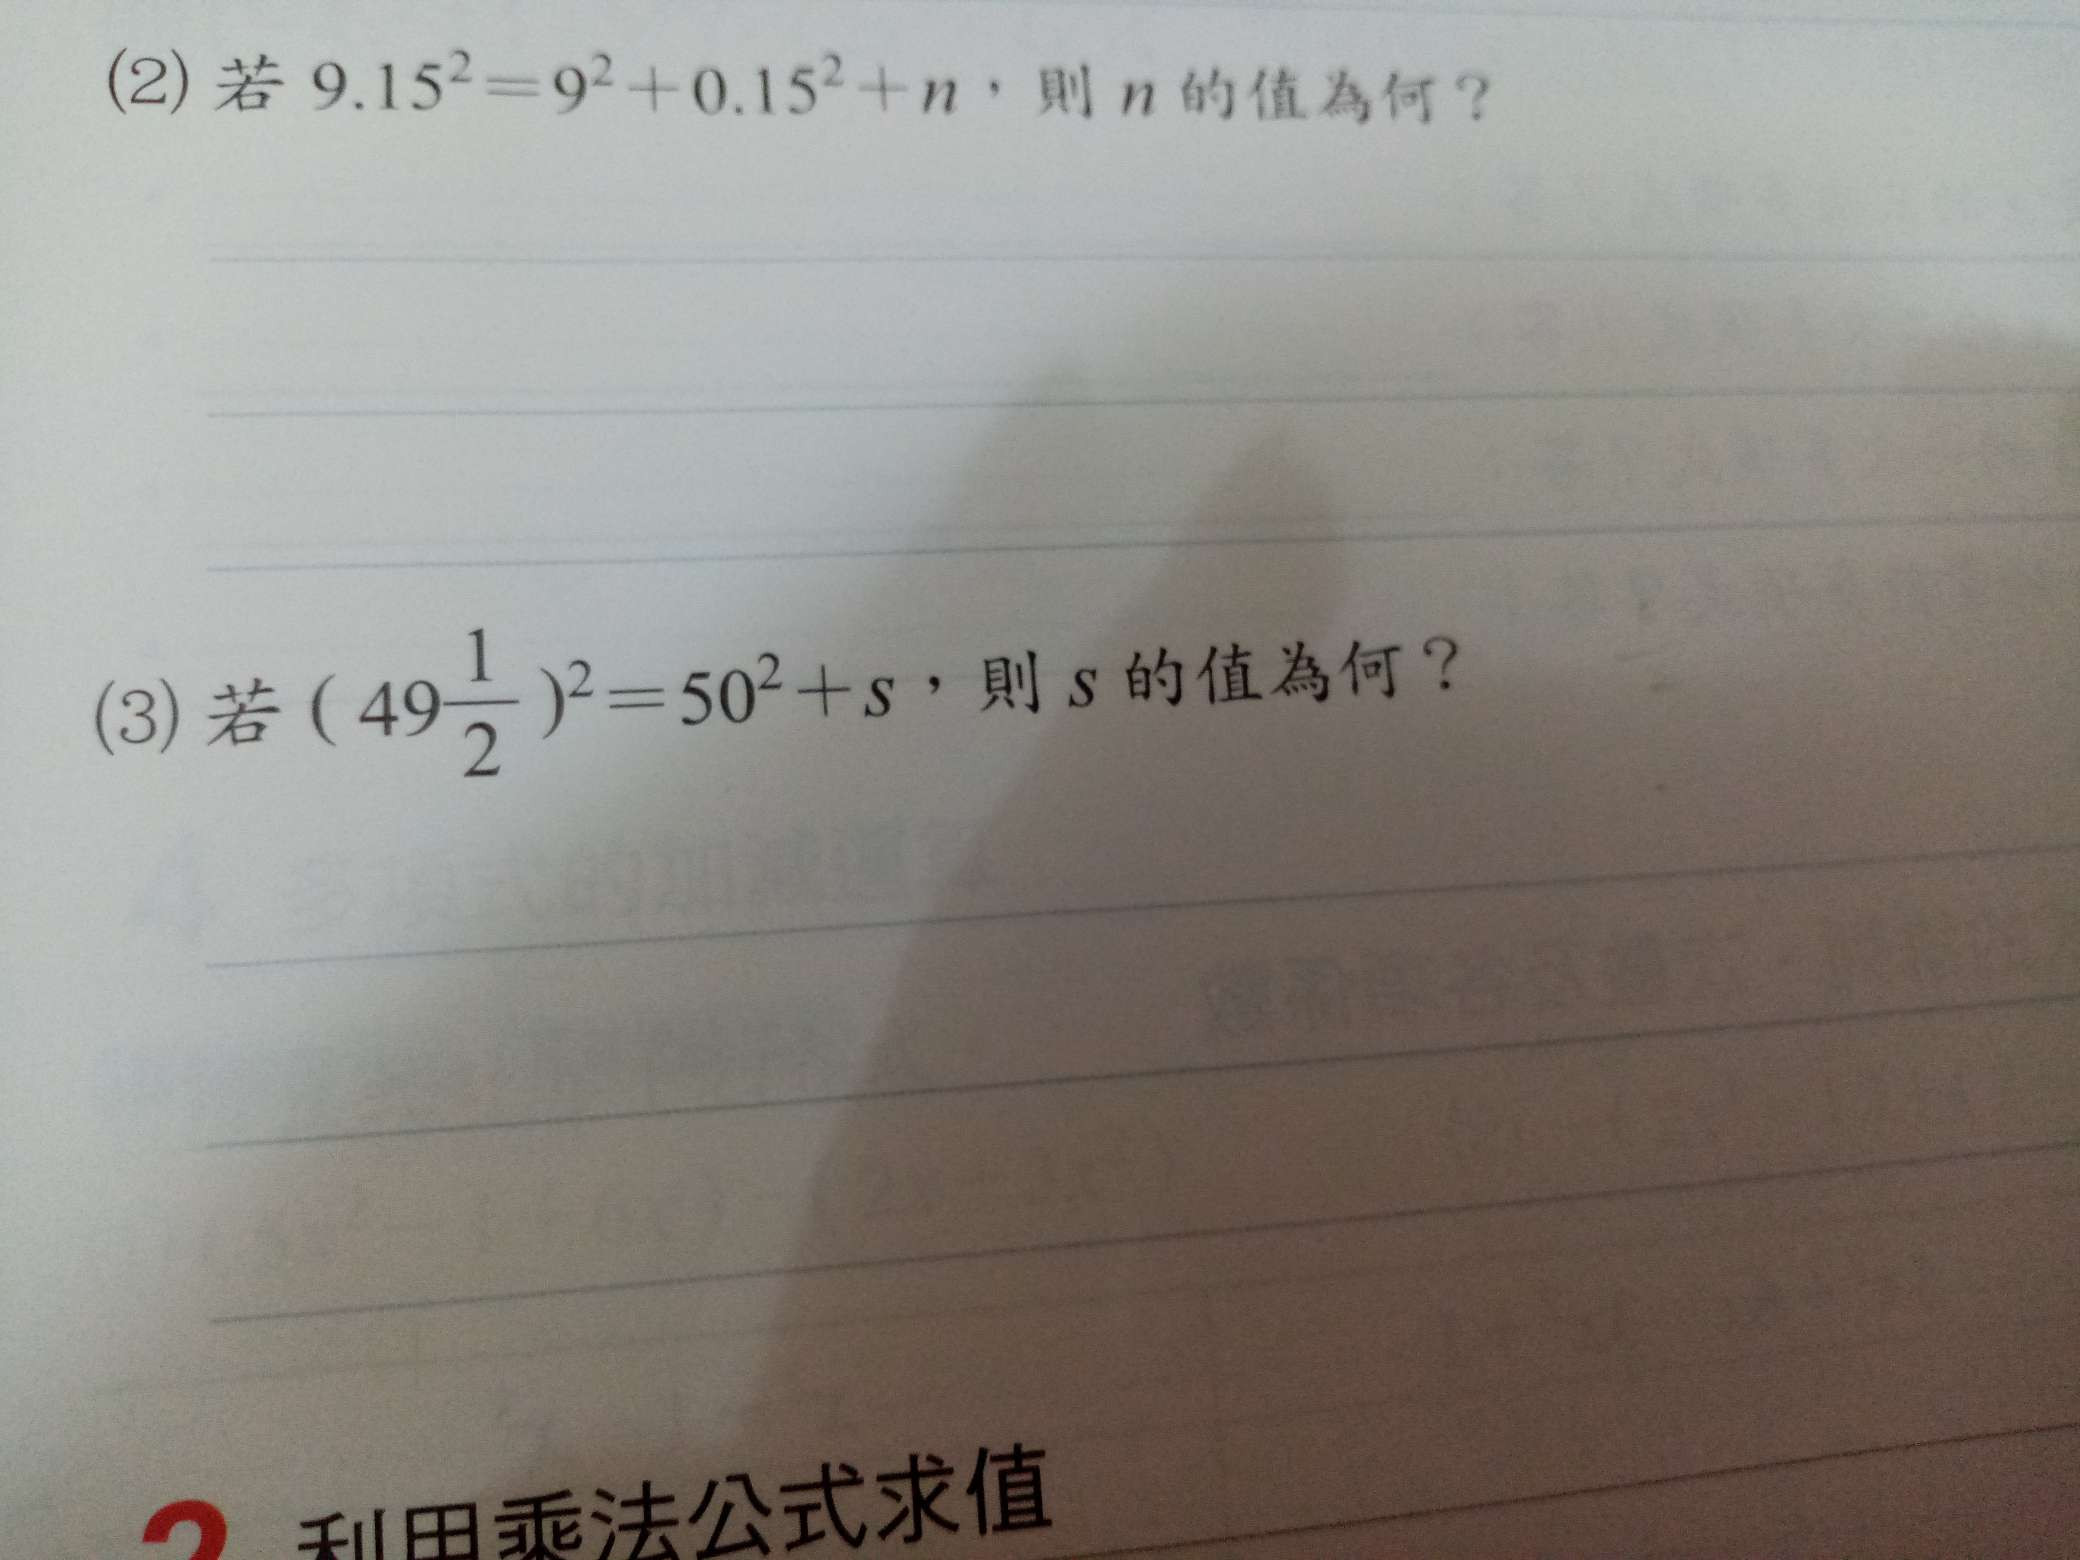 (2) 若 9.15²=9²+0.15²+n，則 n 的值為何？
(3) 若 ( 49 1/2 )²=50²+s，則 s 的值為何？
2 利用乘法公式求值